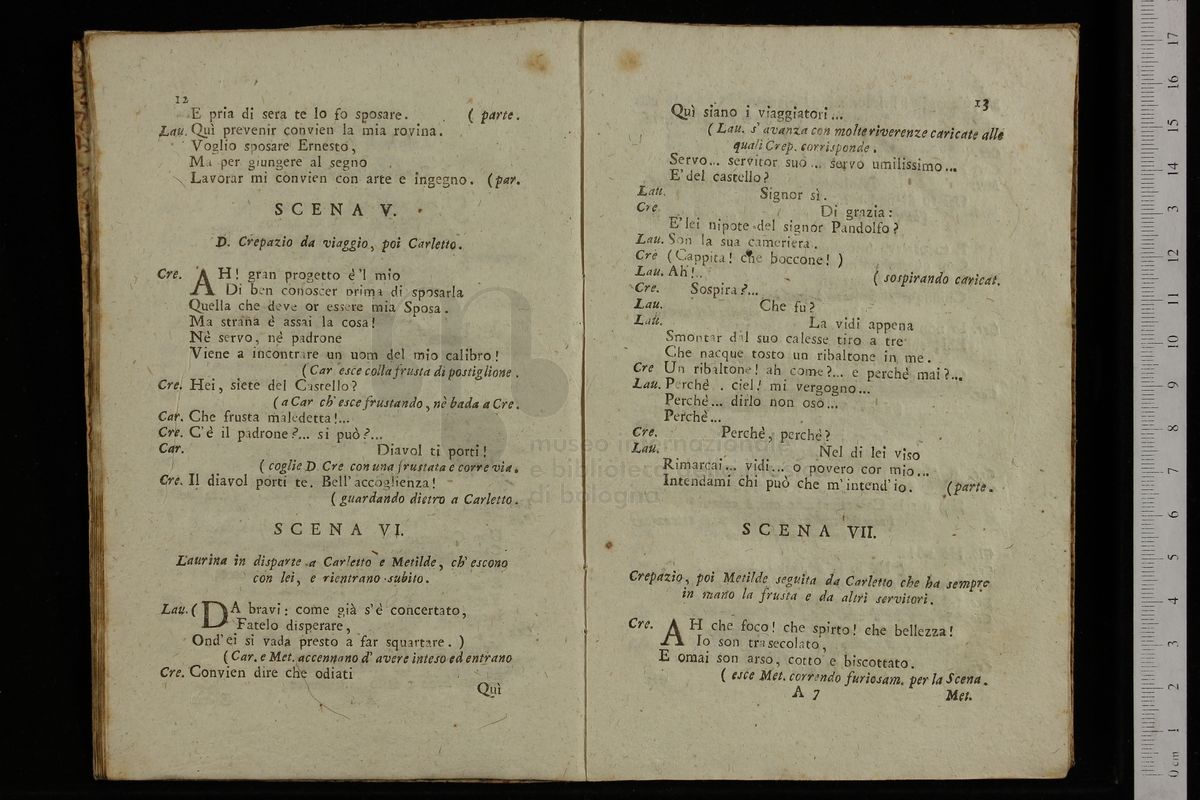 12
E pria di sera te lo fo sposare. ( parte.
Lau. Quì prevenir convien la mia rovina.
Voglio sposare Ernesto,
Ma per giungere al segno
Lavorar mi convien con arte e ingegno. (par.
SCENA V.
D. Crepazio da viaggio, poi Carletto.
Cre. AH! gran progetto è 'l mio
Di ben conoscer prima di sposarla
Quella che deve or essere mia Sposa.
Ma strana è assai la cosa!
Nè servo, nè padrone
Viene a incontrare un uom del mio calibro!
(Car esce colla frusta di postiglione.
Cre. Hei, siete del Castello?
(a Car ch' esce frustando, nè bada a Cre.
Car. Che frusta maledetta!...
Cre. C'è il padrone?... si può?...
Car. Diavol ti porti!
(coglie D Cre con una frustata e corre via.
Cre. Il diavol porti te. Bell' accoglienza!
(guardando dietro a Carletto.
SCENA VI.
Laurina in disparte a Carletto e Metilde, ch' escono
con lei, e rientrano subito.
Lau. (DA bravi: come già s'è concertato,
Fatelo disperare,
Ond' ei si vada presto a far squartare. )
(Car. e Met. accennano d' avere inteso ed entrano
Cre. Convien dire che odiati
Quì
13
Quì siano i viaggiatori...
(Lau. s' avanza con molte riverenze caricate alle
quali Crep. corrisponde.
Servo... servitor suo... servo umilissimo...
E' del castello?
Lau. Signor sì.
Cre. Di grazia:
E' lei nipote del signor Pandolfo?
Lau. Son la sua cameriera.
Cre (Cappita! che boccone! )
Lau. Ah!.. ( sospirando caricat.
Cre. Sospira?...
Lau. Che fu?
Lau. La vidi appena
Smontar dal suo calesse tiro a tre
Che nacque tosto un ribaltone in me.
Cre Un ribaltone! ah come?... e perchè mai?...
Lau. Perchè . ciel! mi vergogno...
Perchè... dirlo non oso...
Perchè...
Cre. Perchè, perchè?
Lau. Nel di lei viso
Rimarcai... vidi... o povero cor mio...
Intendami chi può che m' intend' io. (parte.
SCENA VII.
Crepazio, poi Metilde seguita da Carletto che ha sempre
in mano la frusta e da altri servitori.
Cre. AH che foco! che spirto! che bellezza!
Io son trasecolato,
E omai son arso, cotto e biscottato.
( esce Met. correndo furiosam. per la Scena.
A 7 Met.
museo internazionale
e biblioteca
di bologna